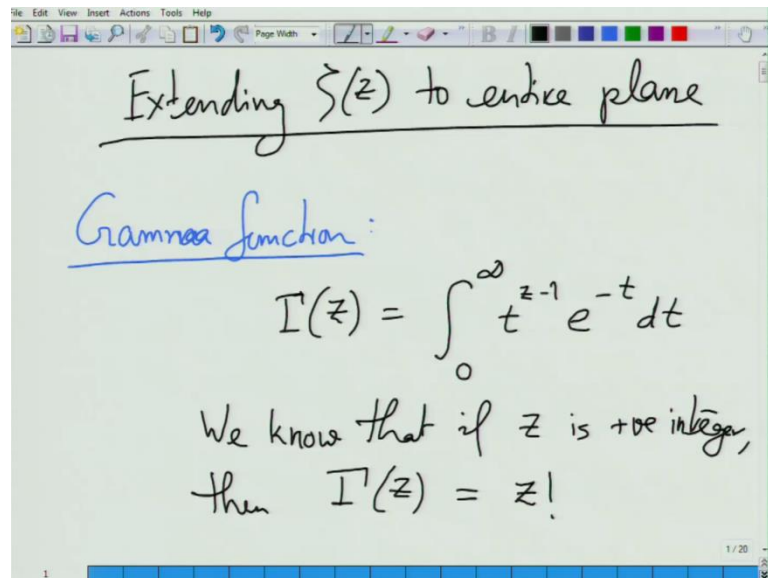 File Edit View Insert Actions Tools Help
Page Width
Extending ζ(z) to entire plane
Gamma function:
Γ(z) = ∫₀^∞ t^{z-1} e^{-t} dt
We know that if z is +ve integer,
then Γ(z) = z!
1 / 20
1